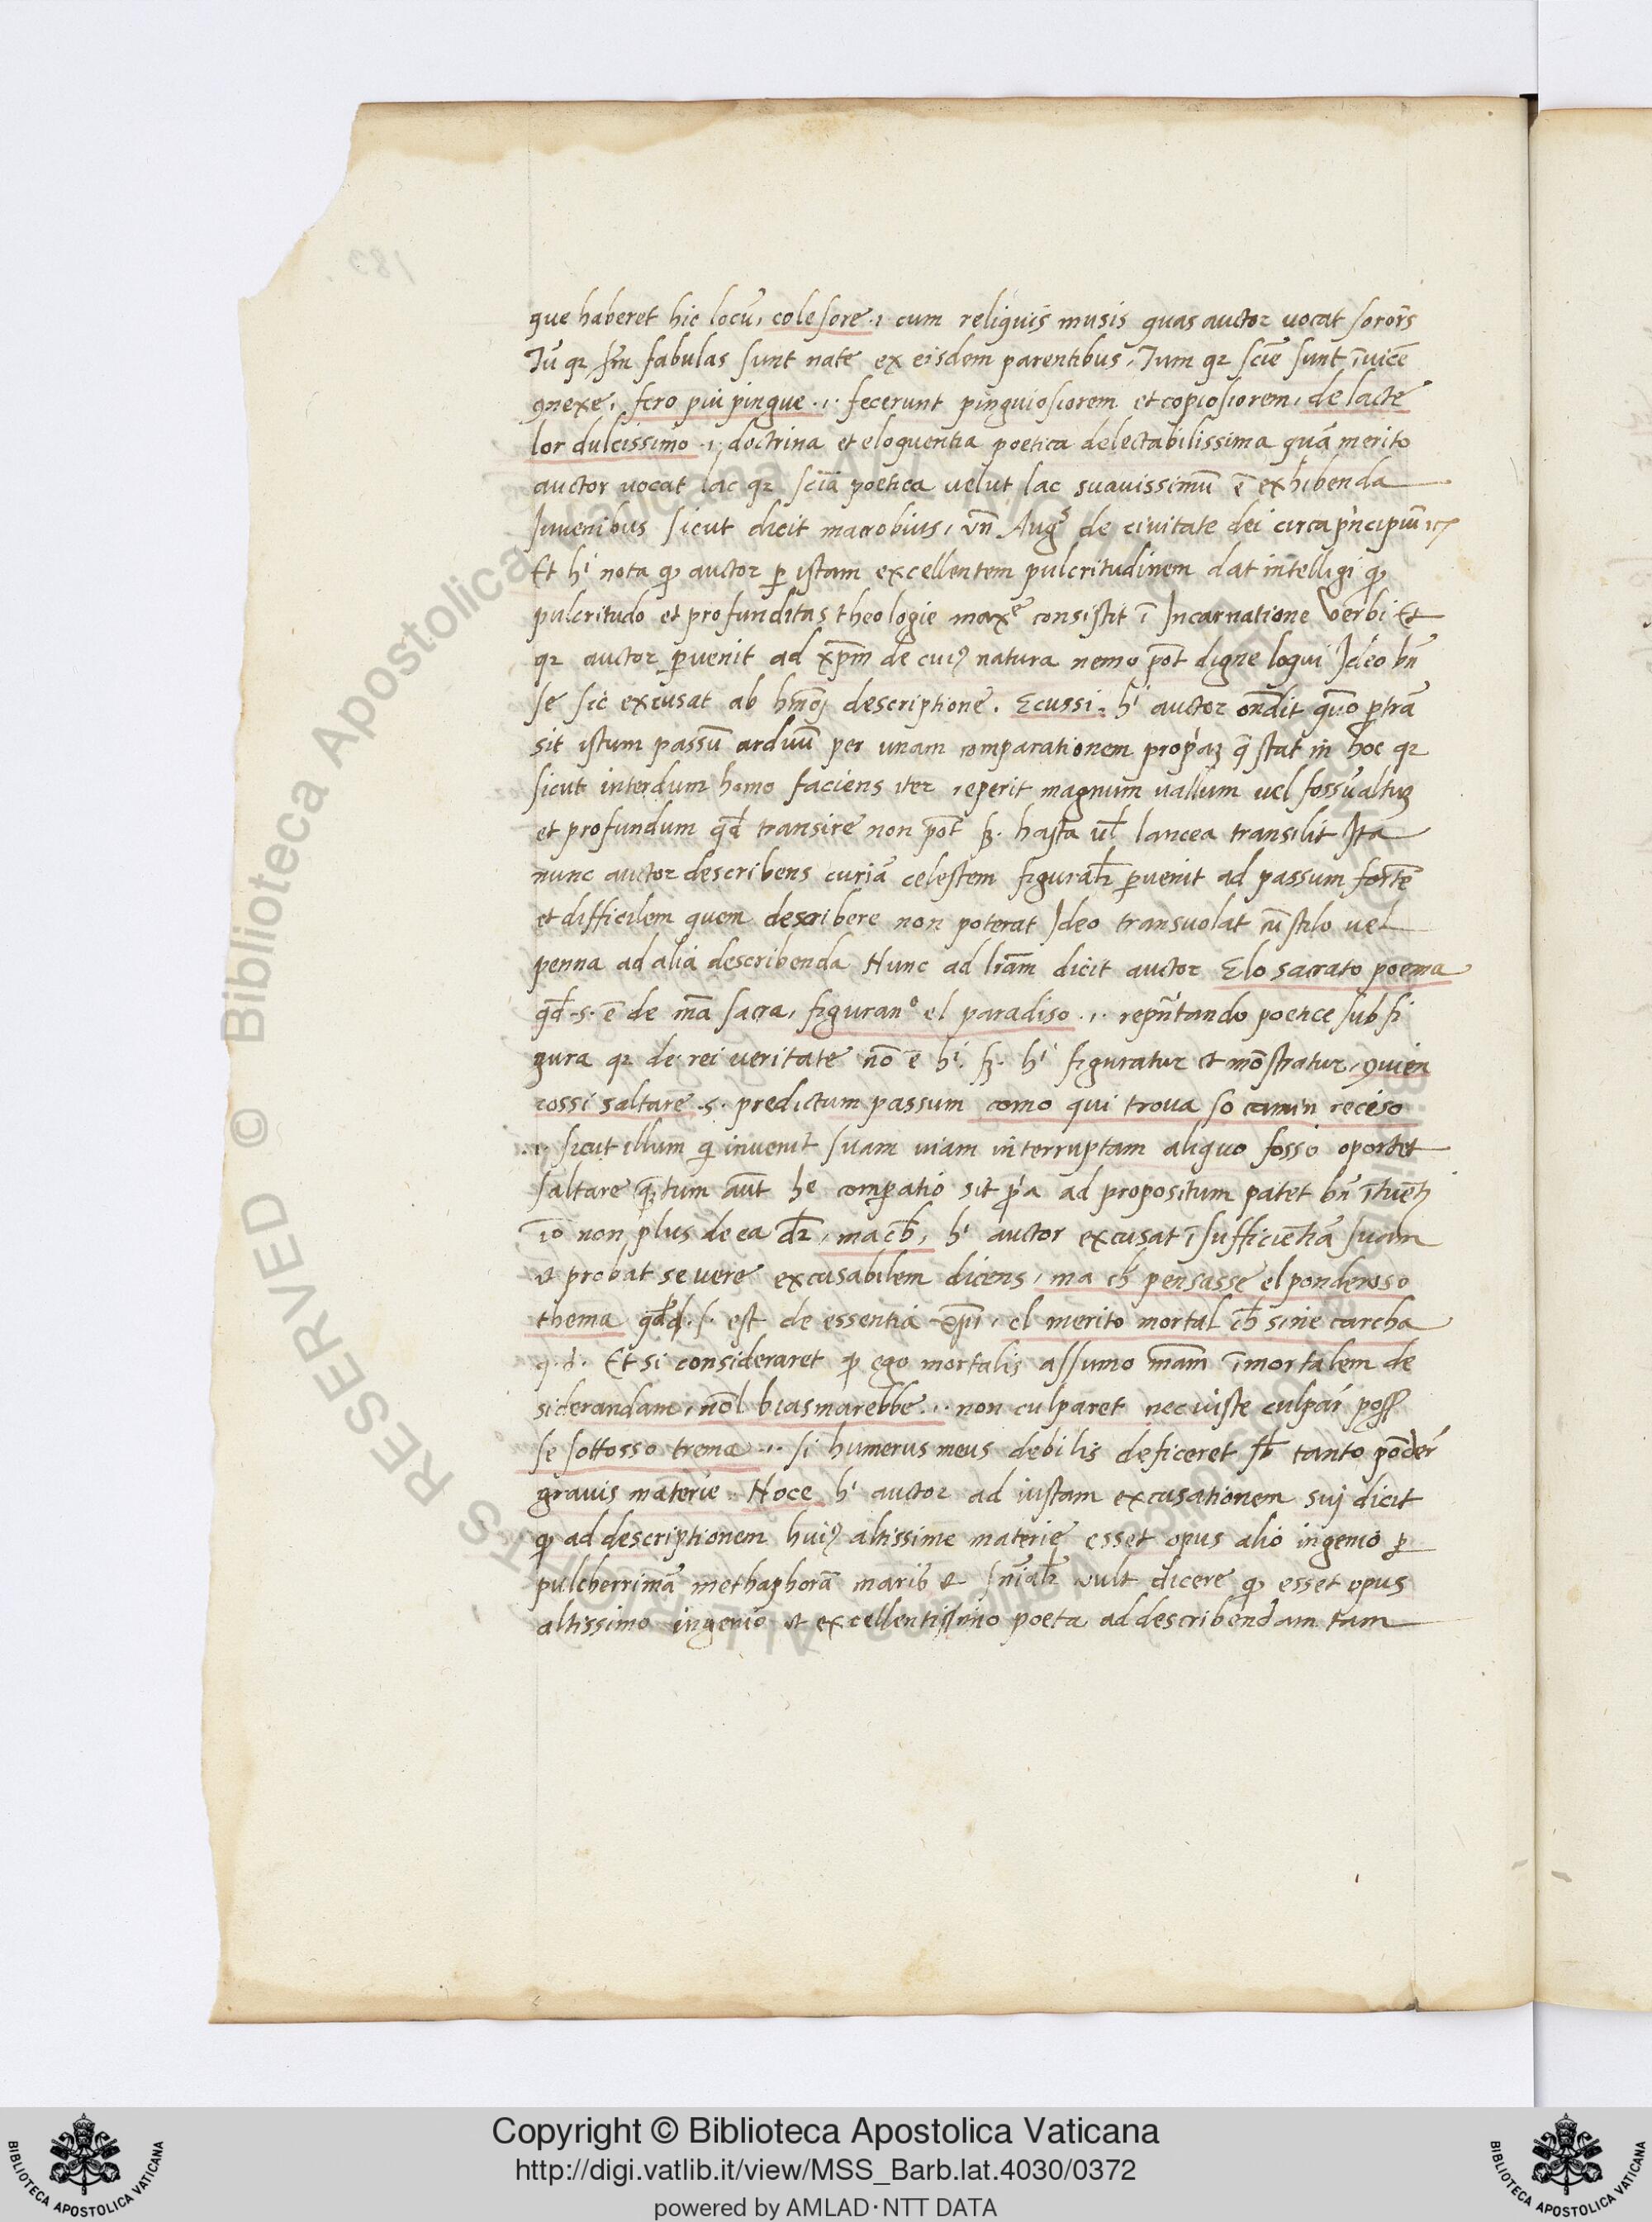 que haberet hic locū, cole sore .i. cum reliquis musis quas auctor uocat sorors̄
Tū qꝛ scd̄m fabulas sunt nate ex eisdem parentibus, Tum qꝛ scīe sunt īuicē
ꝯnexe, fero piu pingue .i. fecerunt pinguiosiorem et copiosiorem, de lacte
lor dulcissimo .i. doctrina et eloquentia poetica delectabilissima quā merito
auctor uocat lac qꝛ scīa poetica uelut lac suauissimū ē exhibenda
Juuenibus sicut dicit macrobius, vn̄ Augꝰ de ciuitate dei circa prīcipiū
Et hⁱ nota ꝙ auctor ꝑ istam excellentem pulcritudinem dat intelligi ꝙ
pulcritudo et profunditas theologie maxᵉ consistit ī Incarnatione Verbi Et
qꝛ auctor ꝑuenit ad xp̄m de cuiꝰ natura nemo pōt digne loqui Ideo bn̄
se sic excusat ab hmōi descriptione. Ecussi. hⁱ auctor on̄dit quō ꝑtrā
sit istum passū arduū per unam comparationem propriaꝫ q̄ stat in hoc qꝛ
sicut interdum homo faciens iter, reperit magnum uallum uel fossū altuꝫ
et profundum qd̄ transire non pōt sꝫ. hasta ul̄ lancea transilit Ita
nunc auctor describens curiā celestem figuralr̄ ꝑuenit ad passum fortē
et difficilem quem describere non poterat Ideo transuolat cū stilo uel
penna ad alia describenda Nunc ad lr̄am dicit auctor Elo sacrato poema
qd̄ .s. ē de mā sacra, figuranᵒ el paradiso .i. repn̄tando poetice sub fi
gura qꝛ de rei ueritate nō ē hⁱ. sꝫ. hⁱ figuratur et mōstratur, ꝯuien
cossi saltare .s. predictum passum como qui troua so camin reciso
.i. sicut illum qi inuenit suam uiam interruptam aliquo fosso oportet
saltare qᵃtum aūt hᵉ comꝑatio sit pr̄a ad propositum patet bn̄ ītuēti
iō non plus de ea dr̄, ma cħ, hⁱ auctor excusat īsufficientiā suam
et probat se uere excusabilem dicens, ma cħ pensasse el ponderoso
thema qd̄ .s. est de essentia xp̄i, el merito mortal cħ sine carcha
q.d. Et si consideraret ꝙ ego mortalis assumo mām īmortalem de
siderandam, nōl biasmarebbe .i. non culparet nec iuste culpar̄ poss̄
se sottosso trema .i. si humerus meus debilis deficeret sb̄ tanto pōder̄
grauis materie. Noce hⁱ auctor ad iustam excusationem sui dicit
ꝙ ad descriptionem huiꝰ altissime materie esset opus alio ingenio ꝑ
pulcherrimā methaphorā marib et sn̄ialr̄ uult dicere ꝙ esset opus
altissimo ingenio et excellentissimo poeta ad describendam tam
Copyright © Biblioteca Apostolica Vaticana
http://digi.vatlib.it/view/MSS_Barb.lat.4030/0372
powered by AMLAD·NTT DATA
BIBLIOTECA APOSTOLICA VATICANA
BIBLIOTECA APOSTOLICA VATICANA